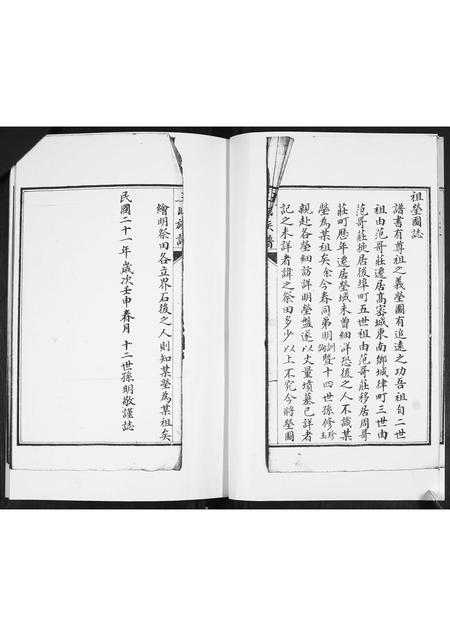 祖塋圖誌
譜書有尊祖之義塋圖有追遠之功吾祖自二世
祖由范哥莊遷居高密城東南鄉城律町三世由
范哥莊徙居後埠町五世祖由范哥莊移居周哥
莊町歷年遷居塋域未曾細詳恐後之人不識某
塋為某祖矣余今春同弟明訓詢暨十四世孫修珍玉
親赴各塋細訪詳明塋盤遂以丈量墳墓已詳者
記之未詳者諱之祭田多少以上不究今將塋圖
族譜
族譜
繪明祭田各立界石後之人則知某塋為某祖矣
民國二十一年歲次壬申春月 十二世孫明敬謹誌